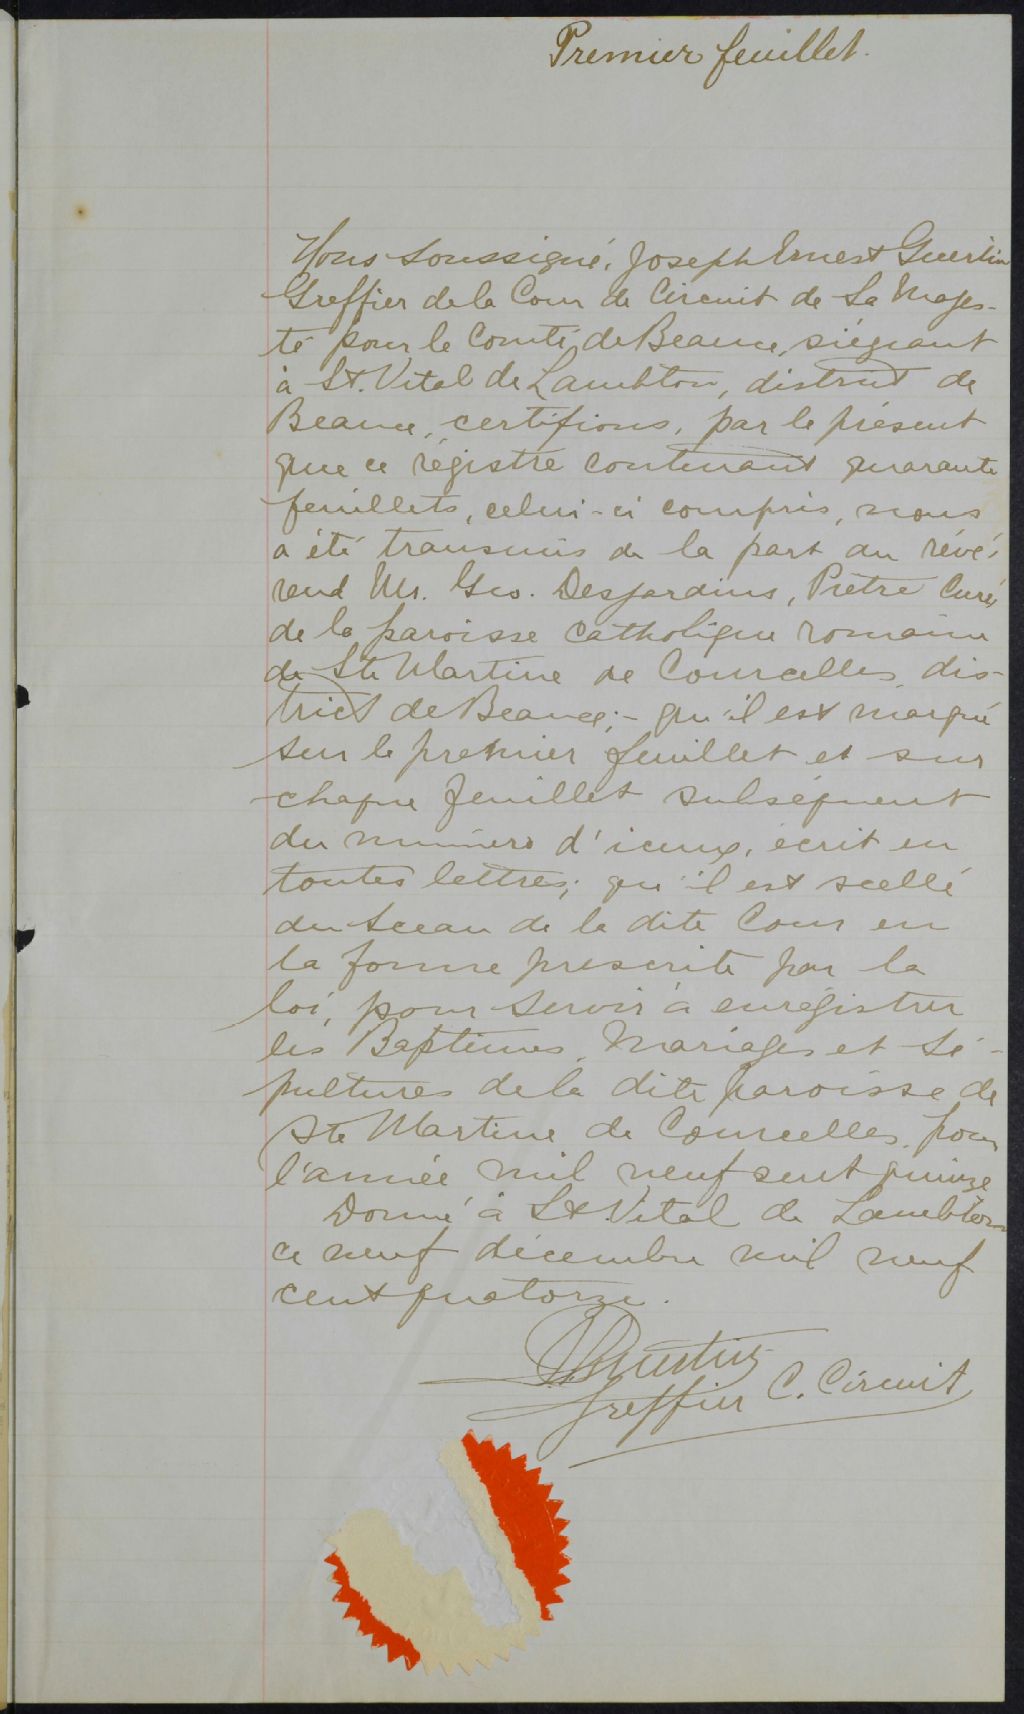 Premier feuillet.
Nous soussigné, Joseph Ernest Guertin
Greffier de la Cour de Circuit de Sa Majes-
té pour le Comté de Beauce, siégeant
à St. Vital de Lambton, district de
Beauce, certifions, par le présent
que ce régistre contenant quarante
feuillets, celui-ci compris, nous
a été transmis de la part du révé-
rend Mr. Geo. Desjardins, Prêtre Curé
de la paroisse catholique romaine
de Ste Martine de Courcelles, dis-
trict de Beauce;- qu'il est marqué
sur le premier feuillet et sur
chaque feuillet subséquent
du numéro d'iceux, écrit en
toutes lettres; qu'il est scellé
du Sceau de la dite Cour en
la forme prescrite par la
loi, pour servir à enrégistrer
les Baptêmes, Mariages et Sé-
pultures de la dite paroisse de
Ste Martine de Courcelles, pour
l'année mil neuf cent quinze
Donné à St. Vital de Lambton
ce neuf décembre mil neuf
cent quatorze.
Guertin
Greffier C. Circuit